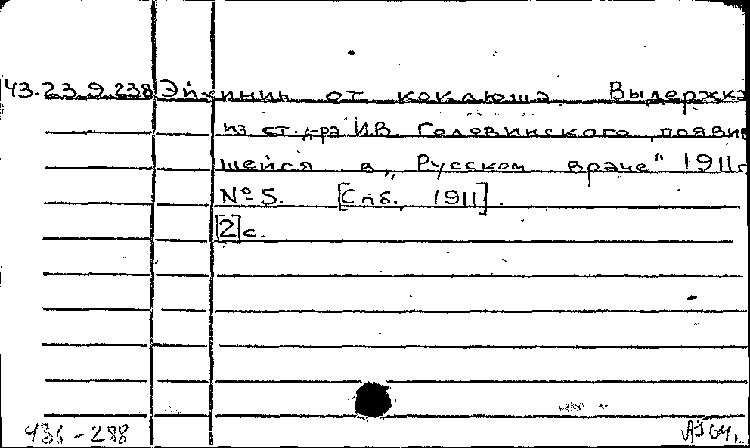 43.23.9.238 Эйхинин от коклюша. Выдержка
из ст. д-ра И.В. Головинского, появив
шейся в „Русском враче“ 1911г
№5. [Спб., 1911].
[2] с.
436-288